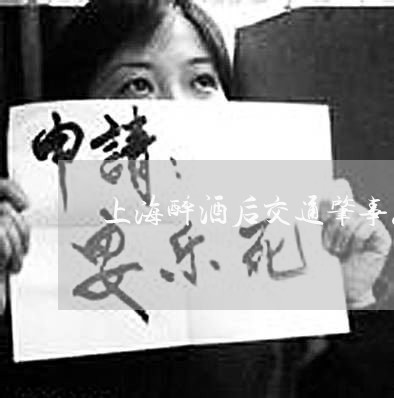 申請：
上海醉酒后交通肇事
乐死